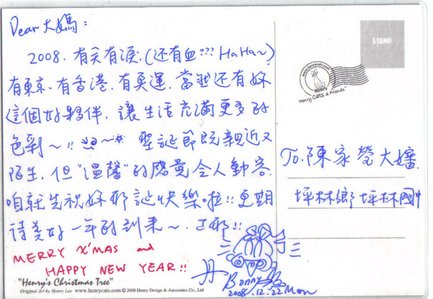 Dear 大媽：
2008. 有笑有淚（還有血??? HaHa~）
有東京、有香港、有奧運，當然還有妳
這個好夥伴，讓生活充滿更多的
色彩~!! 聖誕節既親近又
陌生，但"溫馨"的感覺令人動容
咱就先祝妳耶誕快樂啦!! 更期
待美好一年的到來~
MERRY X'MAS and
HAPPY NEW YEAR!!
Bonny
2008.12.22 Mon
"Henry's Christmas Tree"
Original Art by Henry Lee www.henrycats.com ©2008 Henry Design & Associates Co., Ltd
STAMP
HENRY
Henry Cats & Friends
To: 陳家瑩大嬸
坪林鄉坪林國中